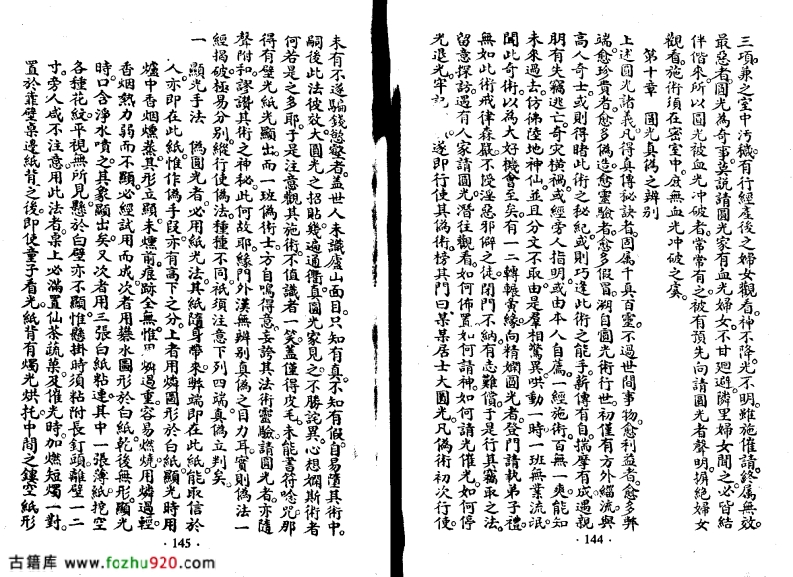 三項兼之室中汚穢有行經產後之婦女觀看神不降光不明雖施催請終屬無效
最忌者圓光為奇事莫說請圓光家有血光婦女不甘迴避隣里婦女聞之必皆結
伴偕來所以圓光被血光冲破者常常有之被有預先向請圓光者聲明摒絕婦女
觀看施術須在密室中庶無血光冲破之虞
第十章 圓光真偽之辨別
上述圓光諸義凡得真傳秘訣者固屬千真百靈不過世間事物愈利益者愈多弊
端愈珍貴者愈多偽造愈靈驗者愈多假冒溯自圓光術行世初僅有方外緇流與
高人奇士或則得睹此術之秘紀或則巧逢此術之能手薪傳有自揣摩有成遇親
朋有失竊逃亡奇灾横禍或經旁人指明或由本人自薦一經施術百無一爽能知
未來過去仿佛陸地神仙並且分文不取由是羣相驚異哄動一時一班無業流氓
聞此奇術以為大好機會至矣有一二轉輾夤緣向精嫻圓光者登門請執弟子禮
無如此術戒律森嚴不授淫惡邪僻之徒閉門不納有志難償于是行其竊取之法
留意探訪遇有人家請圓光潛往觀看如何佈置如何請神如何請光催光如何停
光退光牢記 遂即行使其偽術榜其門曰某某居士大圓光凡偽術初次行使
· 144 ·
未有不遂騙錢慾望者蓋世人未識廬山面目只知有真不知有假自易墮其術中
嗣後此法彼放大圓光之招貼幾遍通衢真圓光家見之不勝詫異心想嫻斯術者
何若是之多耶于是注意觀其施術不值識者一笑蓋僅得皮毛未能書符唸咒那
得有壁光紙光顯出而一班偽術士方自鳴得意妄誇其法術靈驗請圓光者亦隨
聲附和謬讚其術之神秘此何故耶緣門外漢無辨别真偽之目力耳實則偽法一
經揭破極易分别縱行使偽法種種不同祇須注意下列四端真偽立判矣
一 顯光手法 偽圓光者必用紙光法其紙隨身帶來弊端即在此紙能取信於
人亦即在此紙惟作偽手段亦有高下之分上者用燐圖形於白紙顯光時用
爐中香烟燻蒸其形立顯未燻前痕跡全無惟 燐過重容易燃燒用燐過輕
香烟熱力弱而不顯必經試用而成次者用礬水圖形於白紙乾後無形顯光
時口含净水噴之其象顯出矣又次者用三張白紙粘連其中一張薄紙挖空
各種花紋平視無所見懸於白壁亦不顯惟懸掛時須粘附長釘頭離壁一二
寸旁人咸不注意用此法者桌上必滿置仙茶蔬菜及催光時加燃短燭一對
置於靠壁桌邊紙背之後即使童子看光紙背有燭光烘托中間之鏤空紙形
· 145 ·
古籍库 www.fozhu920.com